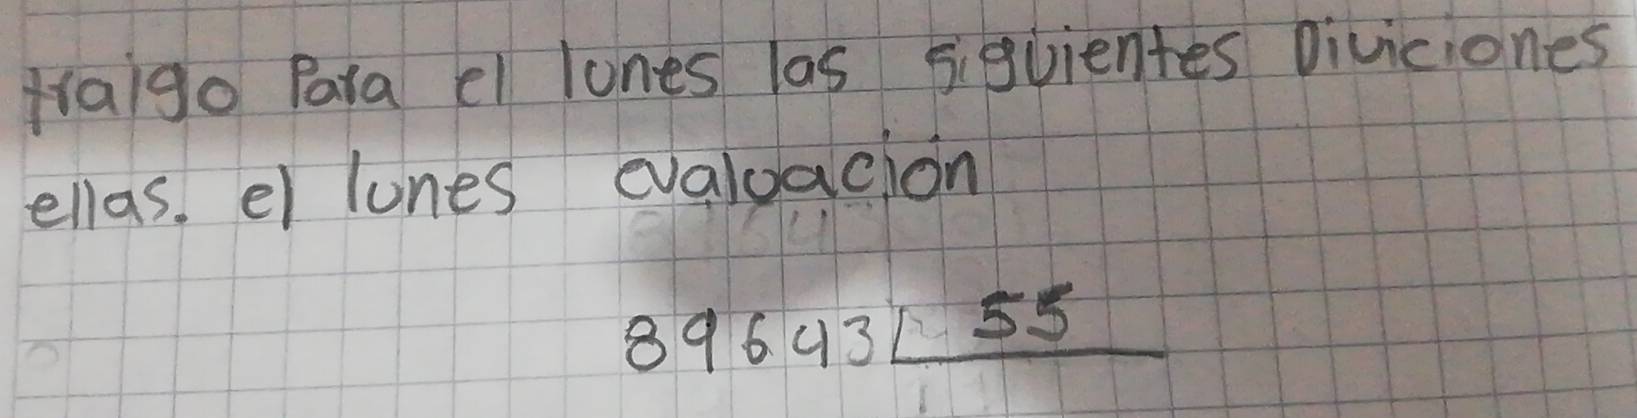 traigo Para el lunes las siguientes Diviciones
ellas. el lunes evaluación
89643 55